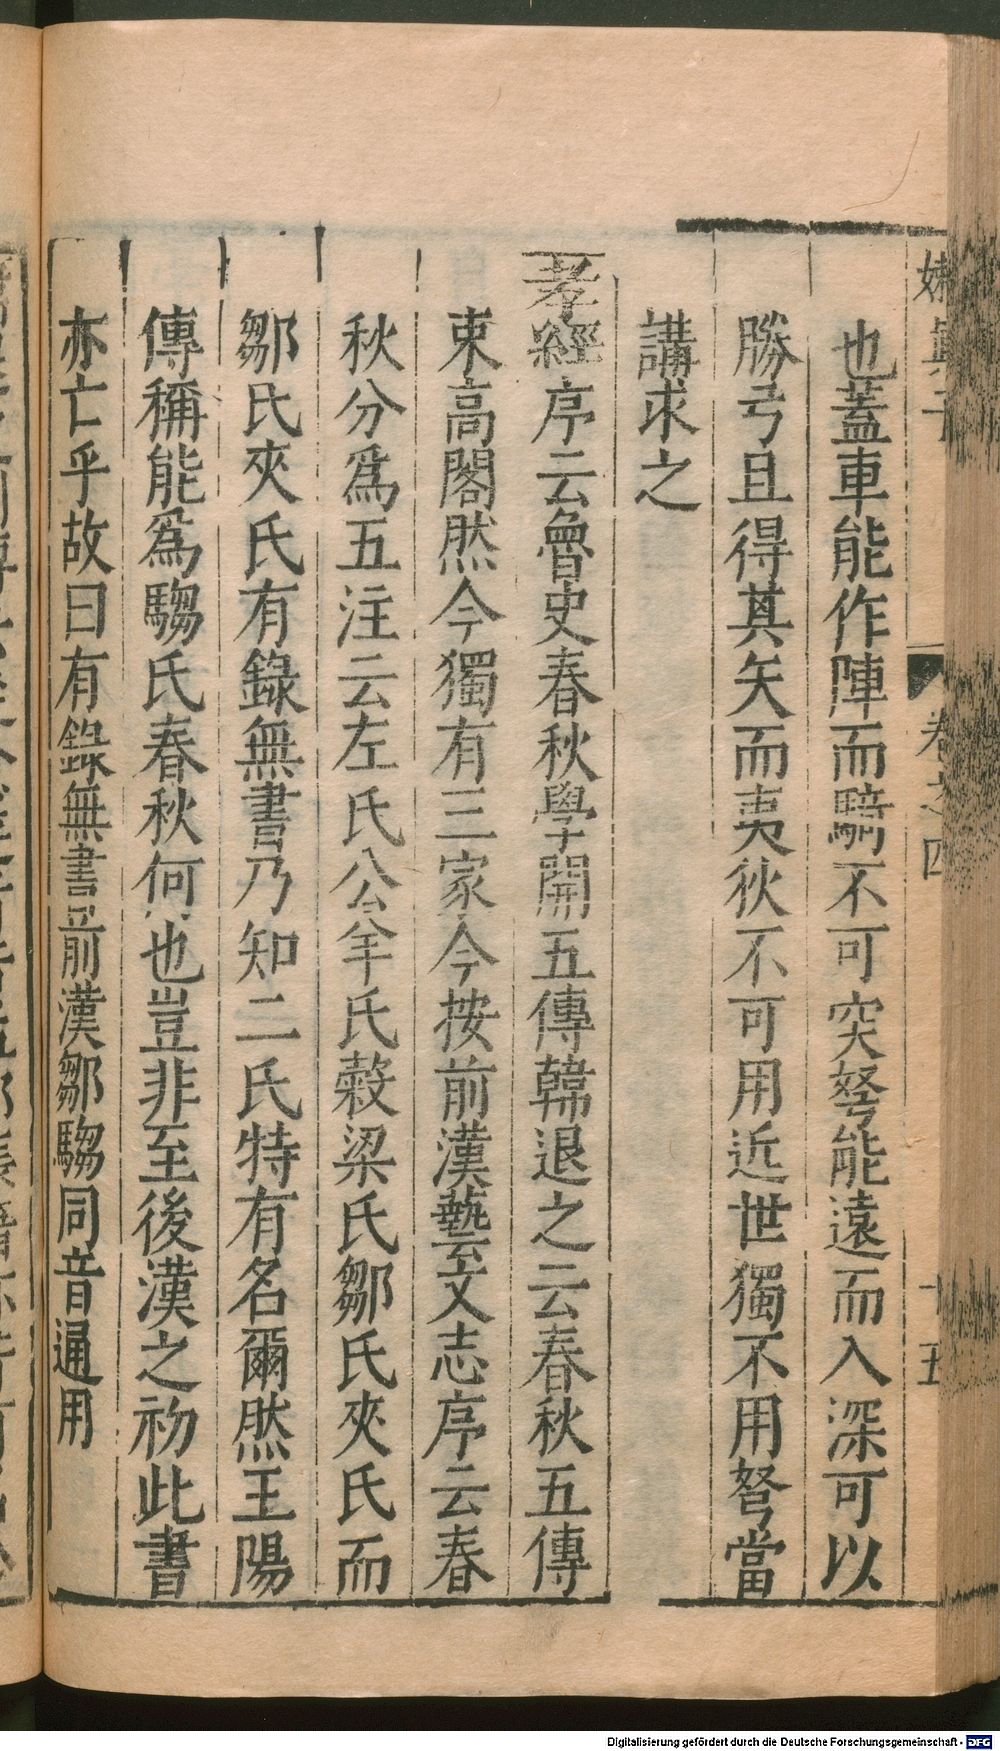 嬾眞子 卷之四 十五
也蓋車能作陣而騎不可突弩能遠而入深可以
勝弓且得其矢而夷狄不可用近世獨不用弩當
講求之
孝經序云魯史春秋學開五傳韓退之云春秋五傳
束高閣然今獨有三家今按前漢藝文志序云春
秋分爲五注云左氏公羊氏榖梁氏鄒氏夾氏而
鄒氏夾氏有錄無書乃知二氏特有名爾然王陽
傳稱能爲騶氏春秋何也豈非至後漢之初此書
亦亡乎故曰有錄無書前漢鄒騶同音通用
Digitalisierung gefördert durch die Deutsche Forschungsgemeinschaft - DFG